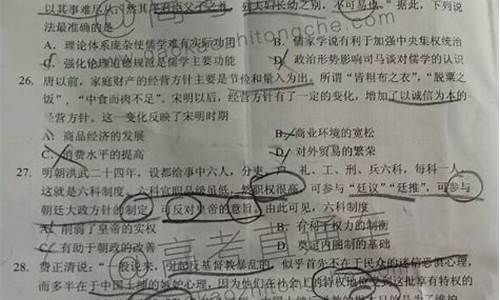 以其事难尽从
夫妇长幼之别，不可易也。”据此，下列说
法最准确的是
A. 理论体系庞杂使儒学难有实际功用
B. 儒家学说有利于加强中央集权统治
强化伦理道德规范是儒学主要功能
D. 政治形势影响司马谈对儒学的认识
26. 唐以前，家庭财产的经营方针主要是节俭和量入为出。所谓“皆粗布之衣”，“脱粟之
饭”，“中食而肉不足”。宋明以后，经营方针有了一定的变化，增加了以诚信为本的
经营方针。这一变化反映了宋明时期
A. 商品经济的发展
B. 商业环境的宽松
C. 消费水平的提高
D. 对外贸易的繁荣
27. 明朝洪武二十四年，设都给事中六人，分吏、户、礼、工、刑、兵六科，每科一人，
这就是六科制度。六科官职品级虽低，然职权很高，可参与“廷议”“廷推”，可参与
朝廷大政方针的制定，可反对皇帝的意旨。由此可见，六科制度
A. 削弱了皇帝的实权
B. 有利于权力的制衡
C. 有助于朝政的改善
D. 奠定内阁制的基础
28. 费正清说：“一般说来，对起反基督教暴乱的，似乎首先不在于民众的迷信恐惧心理，
而多半在于中国士绅的妒妒心理，因为他们在社会上的特权地位受到这批享有特权的